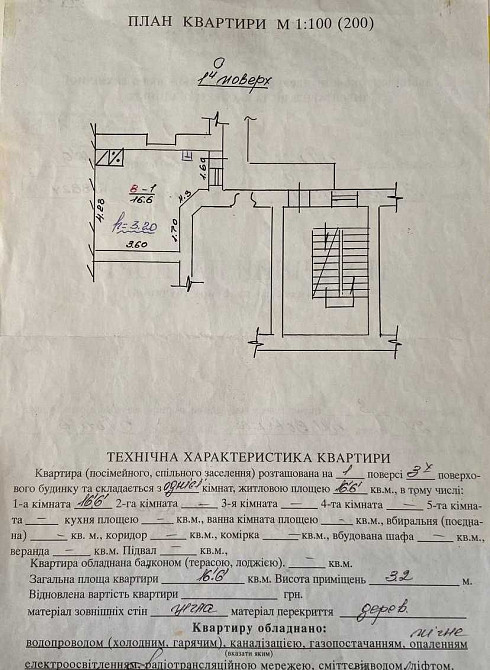 ПЛАН КВАРТИРИ М 1:100 (200)
1й поверх
1.60
4.28
В-1
16.6
4.3
h=3.20
1.70
3.60
ТЕХНІЧНА ХАРАКТЕРИСТИКА КВАРТИРИ
Квартира (посімейного, спільного заселення) розташована на 1 поверсі 3х поверхо-
вого будинку та складається з однієї кімнат, житловою площею 16.6 кв.м., в тому числі:
1-а кімната 16.6 2-га кімната — 3-я кімната — 4-та кімната — 5-та кімна-
та — кухня площею — кв.м., ванна кімната площею — кв.м., вбиральня (поєдна-
на) — кв. м., коридор — кв.м., комірка — кв.м., вбудована шафа — кв.м.,
веранда — кв.м. Підвал — кв.м.,
Квартира обладнана балконом (терасою, лоджією). — кв.м.
Загальна площа квартири 16.6 кв.м. Висота приміщень 3.2 м.
Відновлена вартість квартири грн.
матеріал зовнішніх стін цегла матеріал перекриття дерев.
Квартиру обладнано: пічне
водопроводом (холодним, гарячим), каналізацією, газопостачанням, опаленням
(вказати яким)
електроосвітленням, радіотрансляційною мережею, сміттєпроводом, ліфтом,